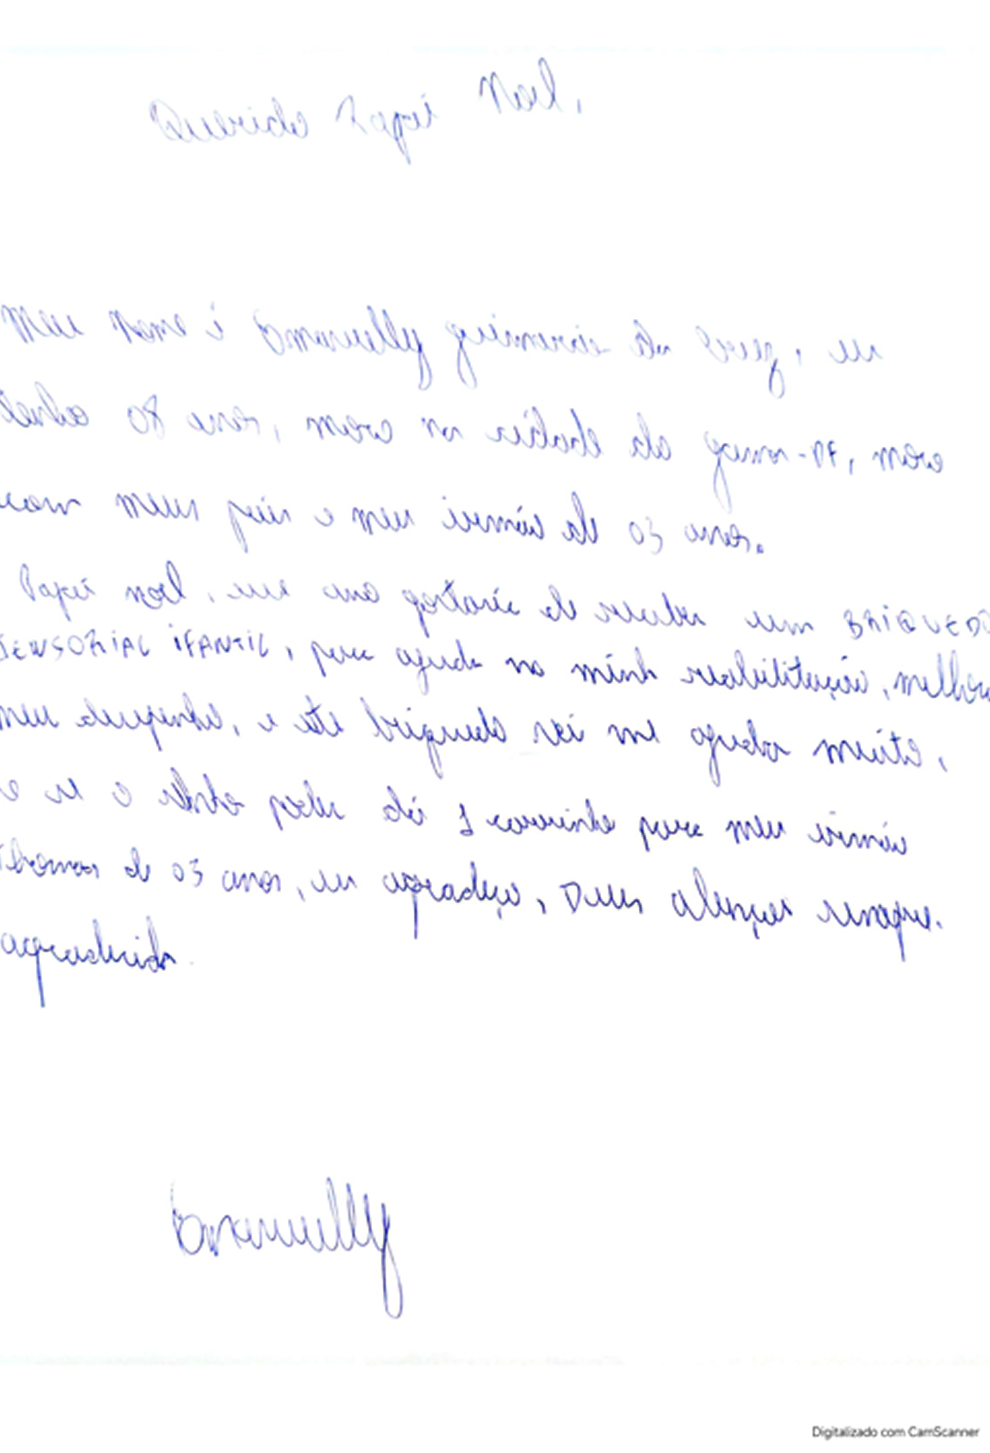 Querido Papai Noel,
Meu Nome é Emanuelly da Cruz, eu
08 anos, moro na cidade do Gama-DF, moro
com meus pais e meu irmão de 03 anos.
Papai noel, esse ano gostaria de receber um BRIQUEDO
SENSORIAL IFANTIL, para ajuda na minha reabilitação, melhora
meu desempenho, e este briquedo vai me ajudar muito,
e se o senhor poder dá 1 carrinho para meu irmão
de 03 anos, eu agradeço, Deus abençoe
agradecida.
Emanuelly
Digitalizado com CamScanner